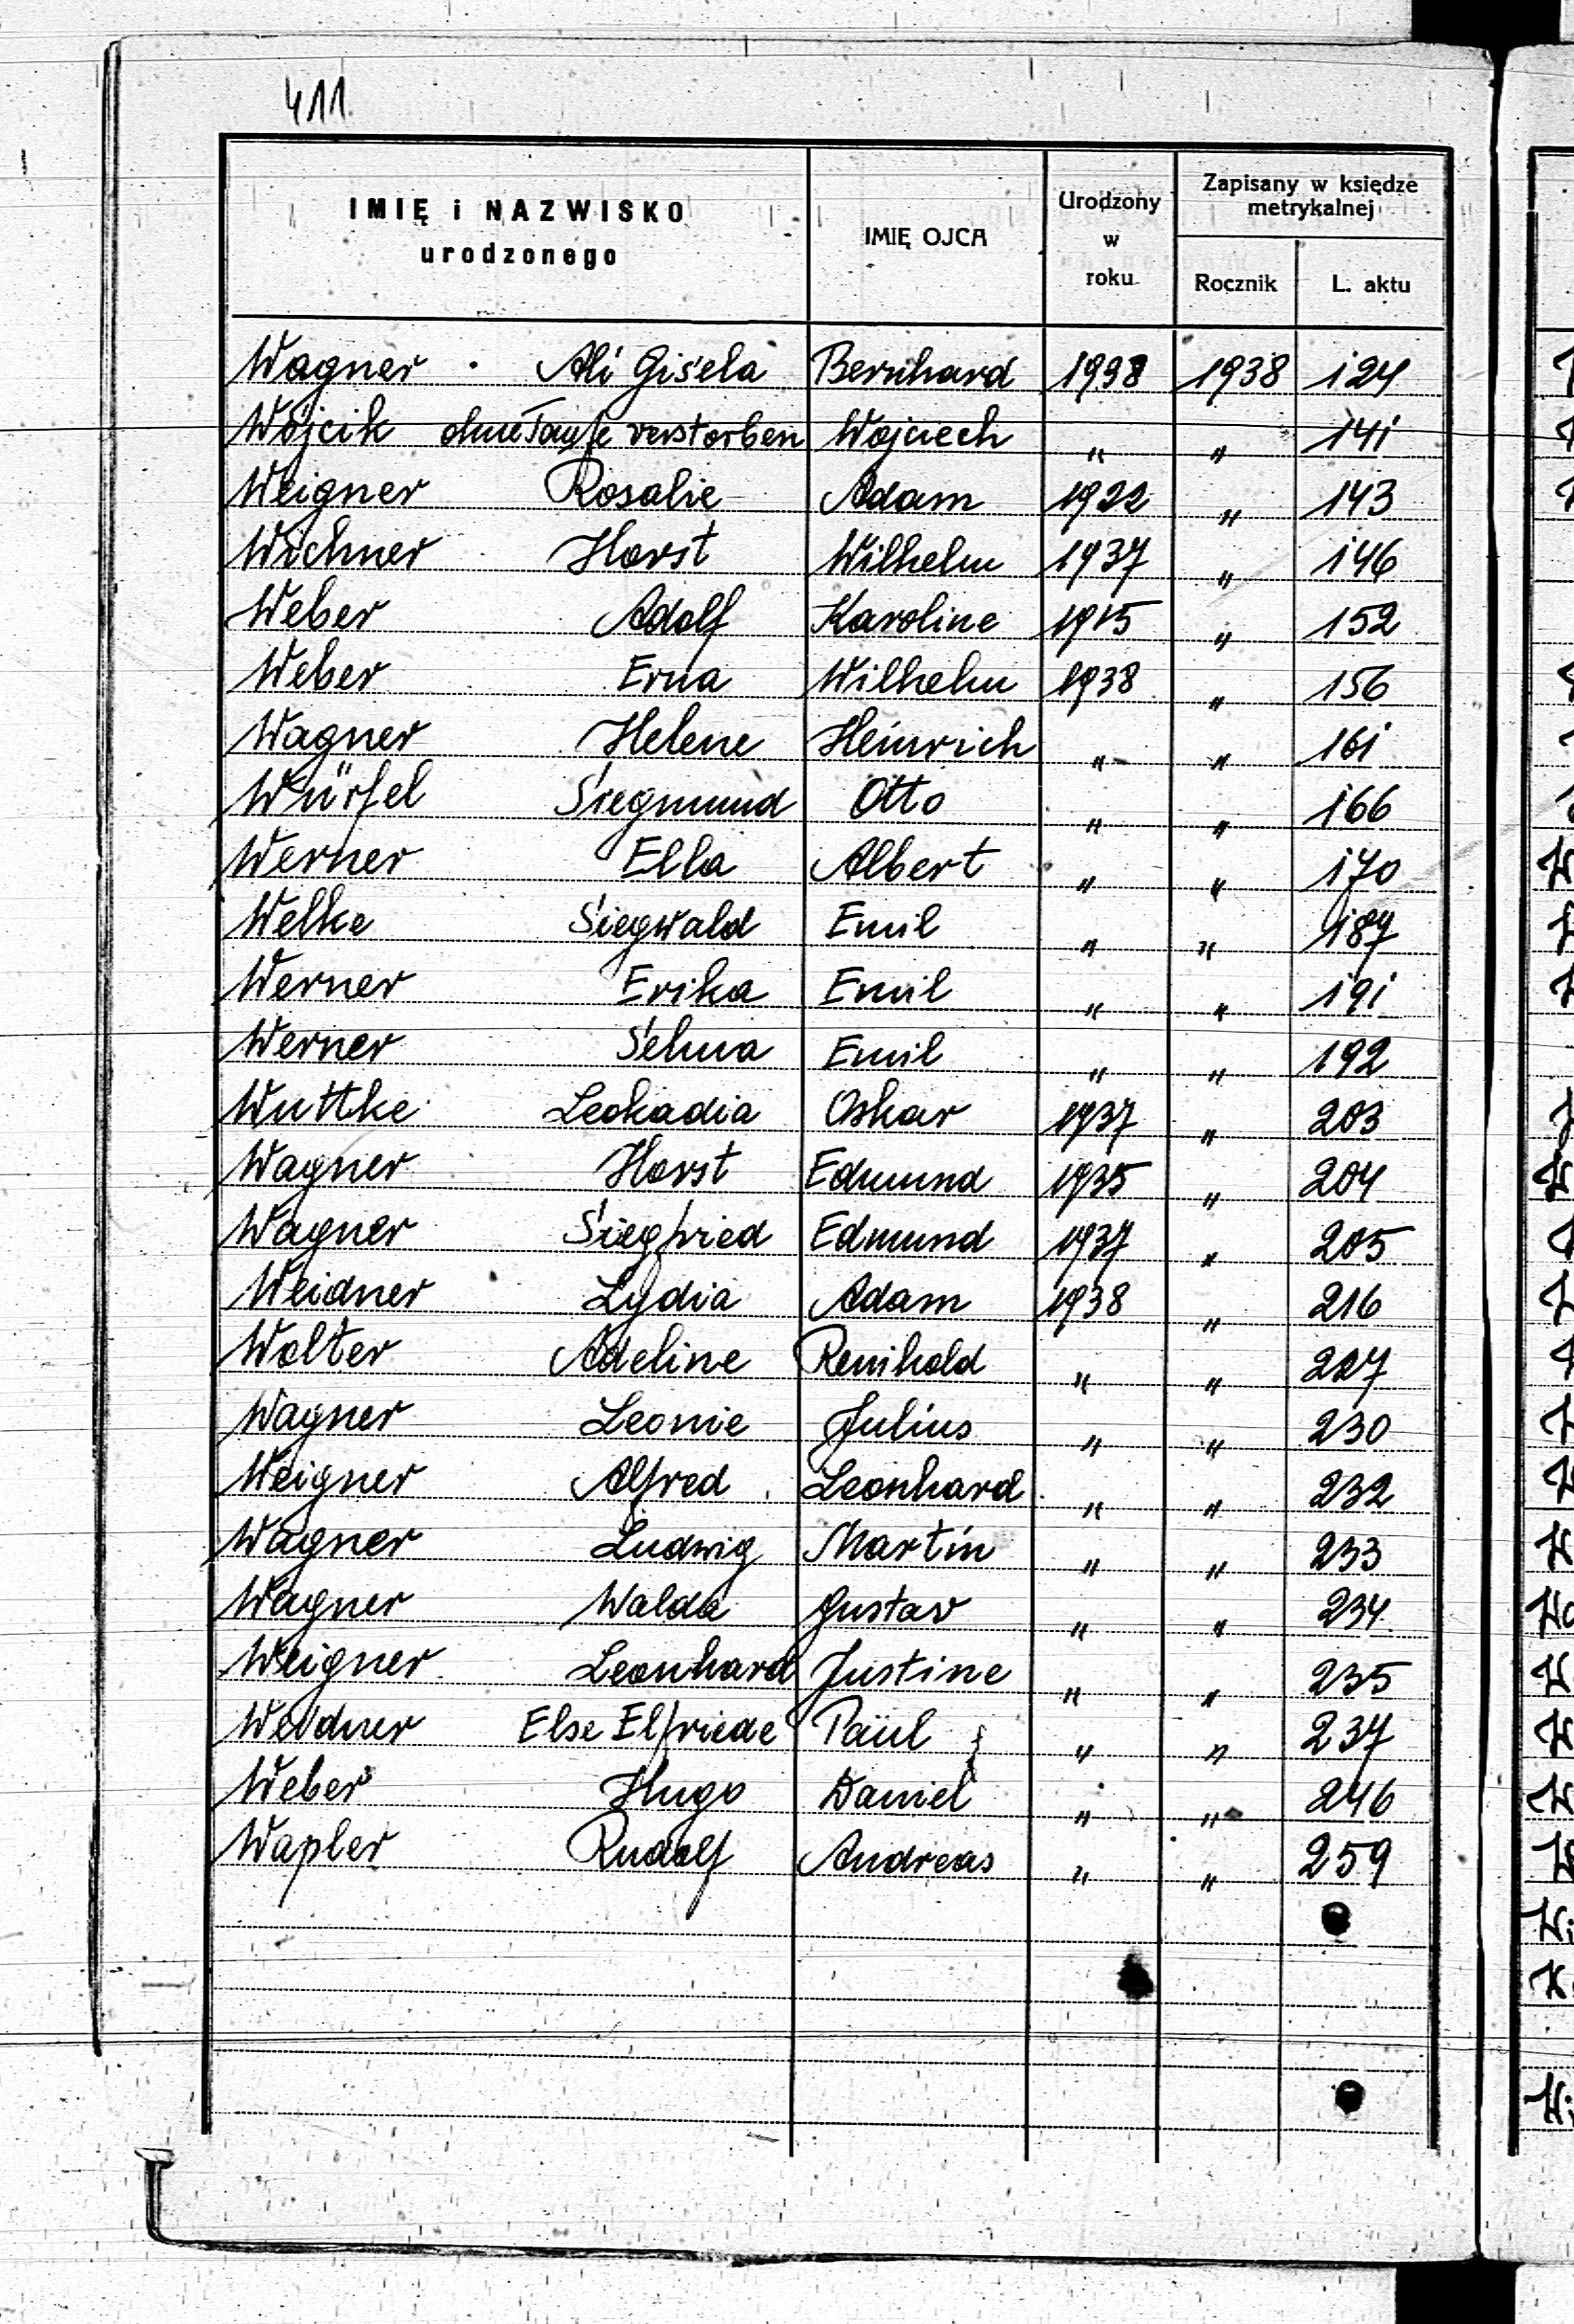 411.
IMIĘ i NAZWISKO urodzonego IMIĘ OJCA Urodzony w roku Zapisany w księdze metrykalnej Rocznik L. aktu
Wagner Ali Gisela Bernhard 1998 1938 124
Wojcik ohne Taufe verstorben Wojciech " " 141
Weigner Rosalie Adam 1922 " 143
Wichner Horst Wilhelm 1937 " 146
Weber Adolf Karoline 1915 " 152
Weber Erna Wilhelm 1938 " 156
Wagner Helene Heinrich " " 161
Würfel Siegmund Otto " " 166
Werner Ella Albert " " 170
Welke Siegwald Emil " " 187
Werner Erika Emil " " 191
Werner Selma Emil " " 192
Wuttke Leokadia Oskar 1937 " 203
Wagner Horst Edmund 1935 " 204
Wagner Siegfried Edmund 1937 " 205
Weidner Lydia Adam 1938 " 216
Wolter Adeline Reinhold " " 227
Wagner Leonie Julius " " 230
Weigner Alfred Leonhard " " 232
Wagner Ludwig Martin " " 233
Wagner Walda Gustav " " 234
Weigner Leonhard Justine " " 235
Weidner Else Elfriede Paul " " 237
Weber Hugo Daniel " " 246
Wapler Rudolf Andreas " " 259